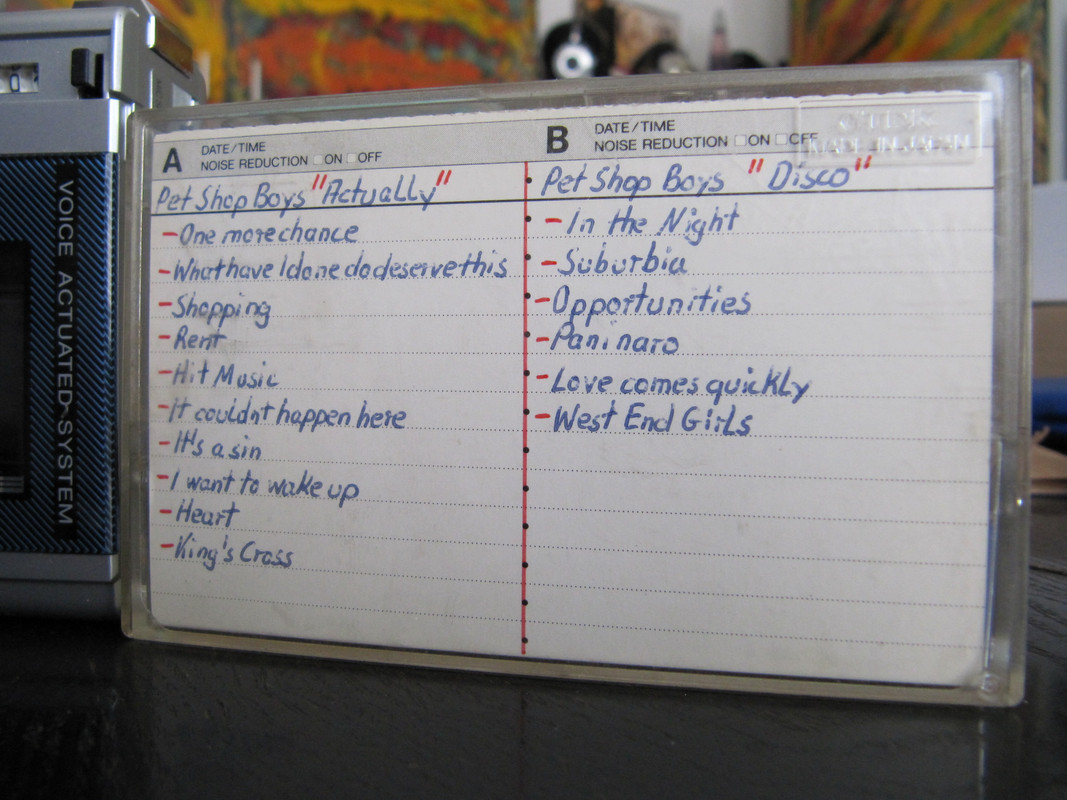 0
VOICE ACTUATED SYSTEM
A
DATE/TIME
NOISE REDUCTION ON OFF
Pet Shop Boys "Actually"
-One more chance
-What have I done do deserve this
-Shopping
-Rent
-Hit Music
-it couldnt happen here
-It's a sin
-I want to wake up
-Heart
-King's Cross
B
DATE/TIME
NOISE REDUCTION ON OFF
TDK
MADE IN JAPAN
Pet Shop Boys "Disco"
-In the Night
-Suburbia
-Opportunities
-Paninaro
-Love comes quickly
-West End Girls